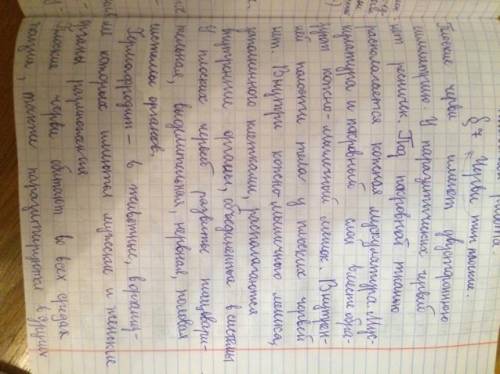 работа
§ 7. Черви тип плоские.
Плоские черви имеют двустороннюю
симметрию. У паразитических червей
нет ресничек. Под покровной тканью
располагается кожная мускулатура. Мус-
кулатура и покровный слой вместе обра-
зуют кожно-мышечный мешок. Внутрен-
ней полости тела у плоских червей
нет. Внутри кожно-мышечного мешка,
заполненного клетками, располагаются
внутренние органы, объединенные в системы
У плоских червей развиты пищевари-
тельная, выделительная, нервная, половая
системы органов.
Гермафродит – в животные, в организ-
ме которых имеются мужские и женские
органы размножения
Плоские черви обитают во всех средах
жизни, также паразитируют в других